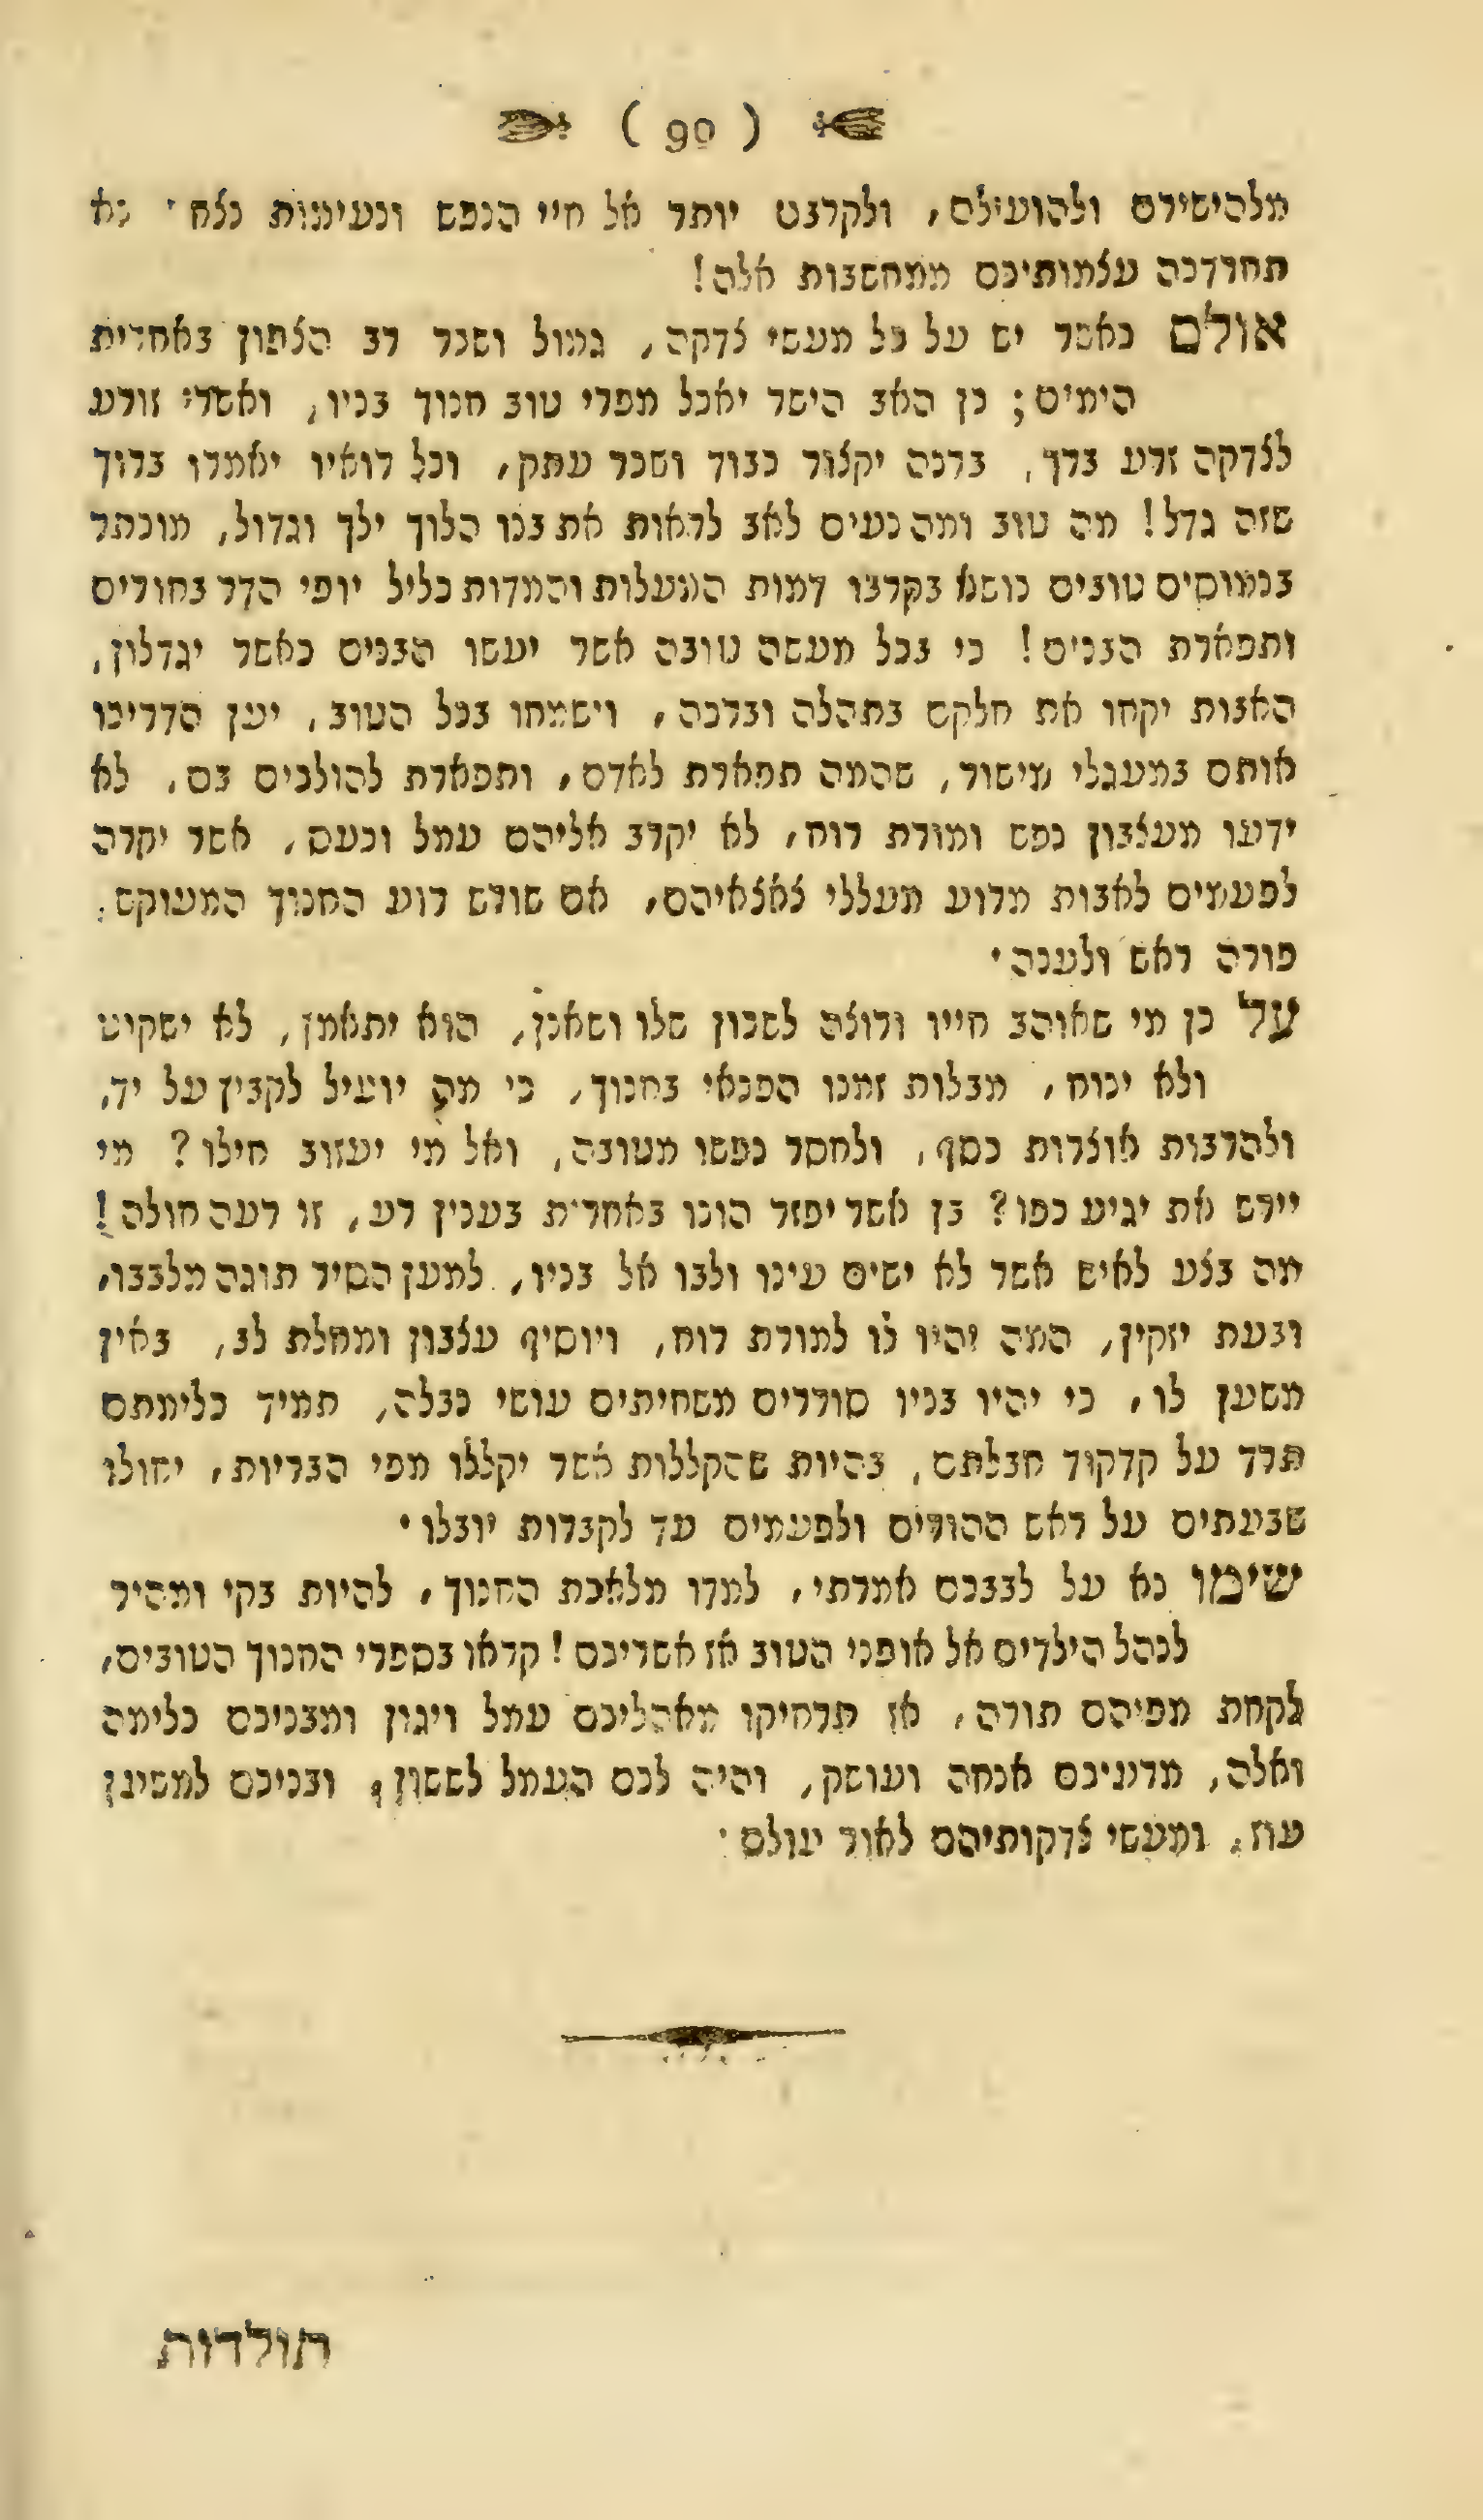 ( 90 )
מלהישירם ולהועילם, ולקרבם יותר אל חיי הנפש ונעימות נצח· נא
תחרדנה עצמותיכם ממחשבות אלה!
אולם כאשר יש על כל מעשי צדקה, גמול ושכר רב הצפון באחרית
הימים; כן האב הישר יאכל מפרי טוב חנוך בניו, ואשרי זורע
לצדקה זרע ברך, ברנה יקצור כבוד ושכר עתק, וכל רואיו יאמרו ברוך
שזה גדל! מה טוב ומה נעים לאב לראות את בנו הלוך ילך וגדול, מוכתר
בנמוסים טובים נושא בקרבו דמות המעלות והמדות כליל יופי הדר בחורים
ותפארת הבנים! כי בכל מעשה טובה אשר יעשו הבנים כאשר יגדלון,
האבות יקחו את חלקם בתהלה וברכה, וישמחו בכל הטוב, יען הדריכו
אותם במעגלי מישור, שהמה תפארת לאדם, ותפארת להולכים בם, לא
ידעו מעצבון נפש ומורת רוח, לא יקרב אליהם עמל וכעס, אשר יקרה
לפעמים לאבות מרוע מעללי צאצאיהם, אם שורש רוע החנוך המעוקש,
פורה ראש ולענה·
על כן מי שאוהב חייו ורוצה לשכון שלו ושאנן, הוא יתאמץ, לא ישקוט
ולא ינוח, מבלות זמנו הפנאי בחנוך, כי מה יועיל לקבץ על יד,
ולהרבות אוצרות כסף, ולחסר נפשו מטובה, ואל מי יעזוב חילו? מי
יירש את יגיע כפו? בן אשר יפזר הונו באחרית בענין רע, זו רעה חולה!
מה בצע לאיש אשר לא ישים עינו ולבו אל בניו, למען הסיר תוגה מלבבו,
ובעת יזקין, המה יהיו לו למורת רוח, ויוסיף עצבון ומחלת לב, באין
משען לו, כי יהיו בניו סוררים משחיתים עושי נבלה, תמיד כלימתם
תרד על קדקוד חבלתם, בהיות שהקללות אשר יקללו מפי הבריות, יחולו
שבעתים על ראש ההורים ולפעמים עד לקברות יובלו·
שימו נא על לבבכם אמרתי, למדו מלאכת החנוך, להיות בקי ומהיר
לנהל הילדים אל אופני הטוב אז אשריכם! קראו בספרי החנוך הטובים,
לקחת מפיהם תורה, אז תרחיקו מאהליכם עמל ויגון ומבניכם כלימה
ואלה, מרעיכם אנחה ועושק, והיה לכם העמל לששון, ובניכם למשען
עוז, ומעשי צדקותיהם לאור עולם·
תולדות